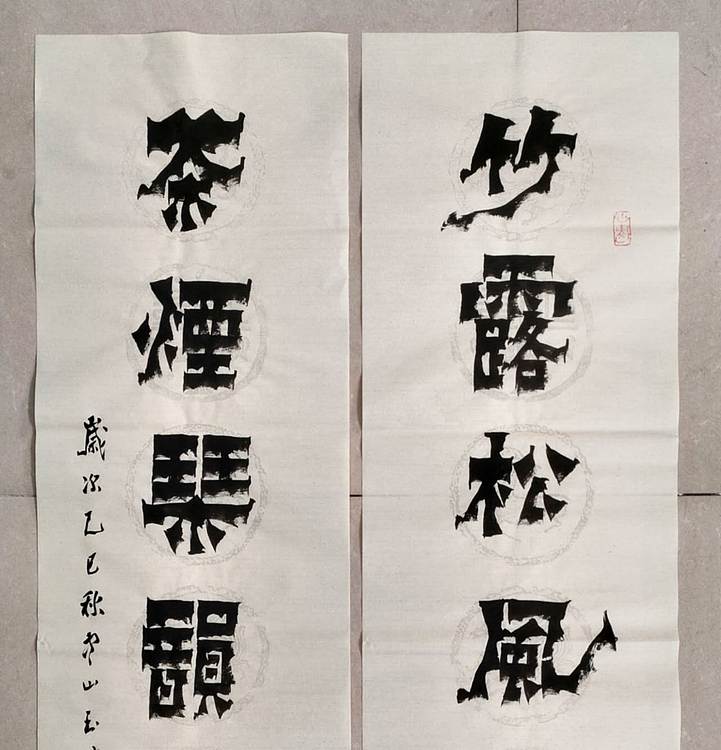 竹露松風
茶煙琹韻
歲次乙巳秋山玉